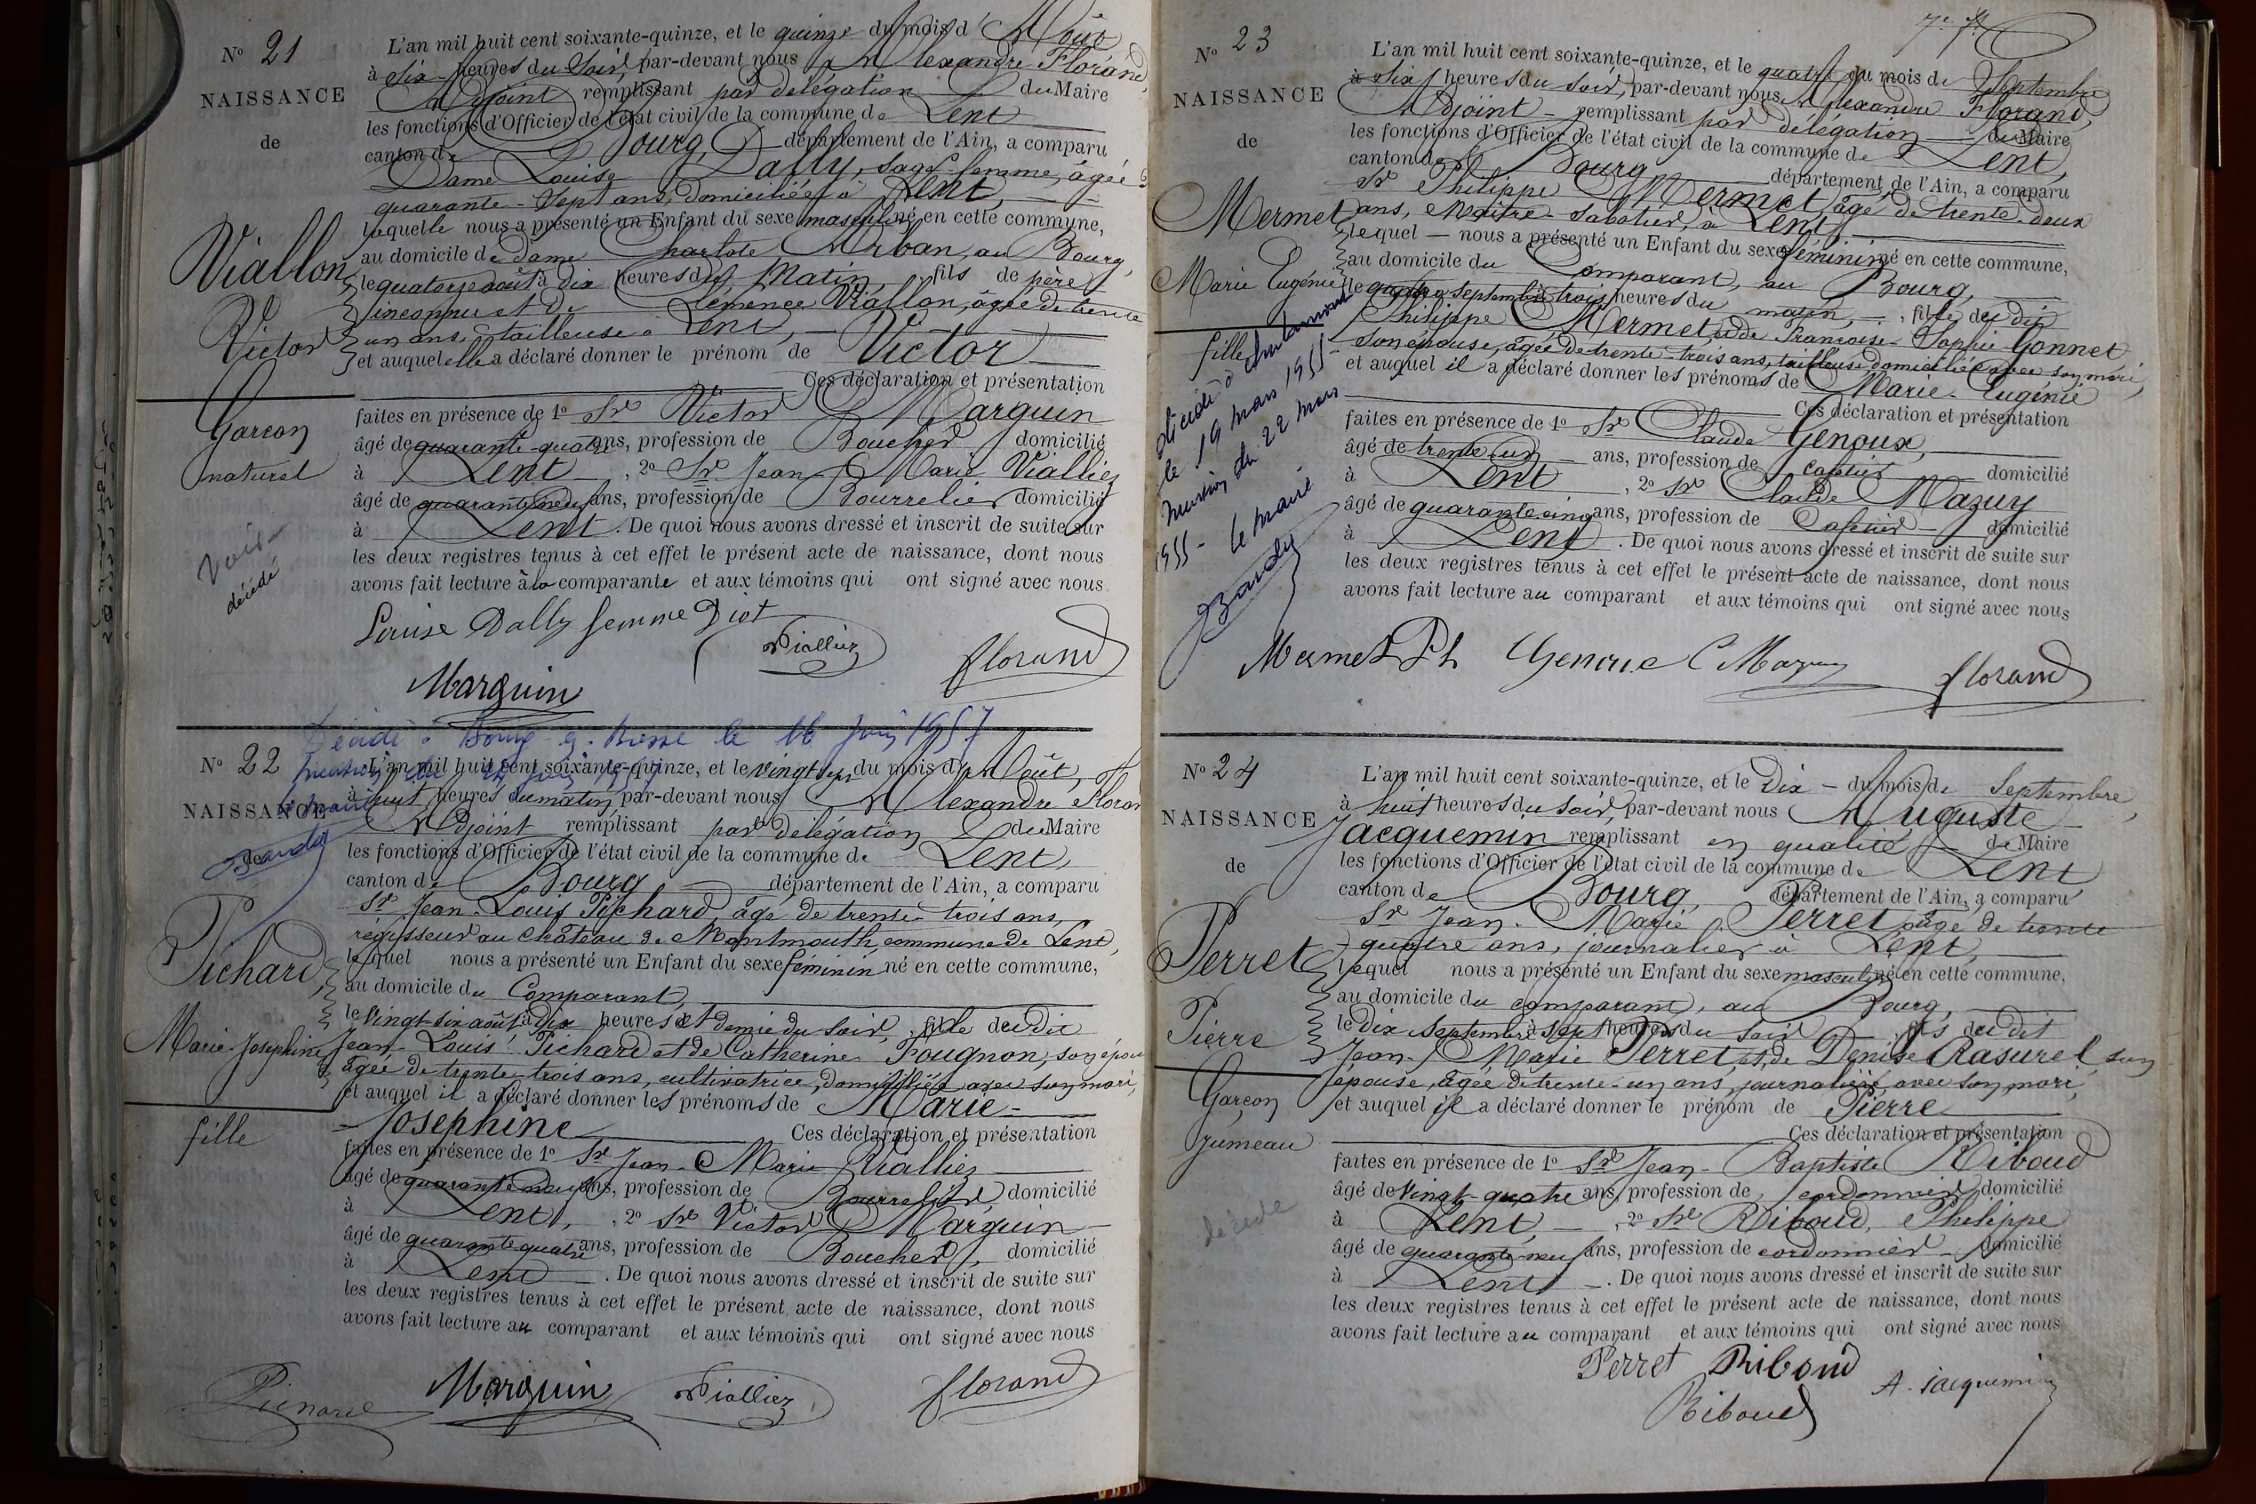 N° 21
NAISSANCE
de
Viallon
Victor
Garçon
naturel
décédé
L'an mil huit cent soixante-quinze, et le quinze du mois d'Août
à six heures du Soir, par-devant nous Alexandre Florand,
Adjoint remplissant par délégation du Maire
les fonctions d'Officier de l'état civil de la commune de Lent
canton de Bourg, département de l'Ain, a comparu
Dame Louise Dally, sage-femme, âgée de
quarante-sept ans, domiciliée à Lent,
laquelle nous a présenté un Enfant du sexe masculin né en cette commune,
au domicile de dame Charlote Urban, au Bourg,
le quatorze août à dix heures du Matin, fils de père
inconnu et de Clémence Viallon, âgée de trente
un ans, tailleuse à Lent,
et auquel elle a déclaré donner le prénom de Victor
Ces déclaration et présentation
faites en présence de 1° Sr Victor Marguin
âgé de quarante-quatre ans, profession de Boucher domicilié
à Lent, 2° Sr Jean Marie Viallier
âgé de quarante neuf ans, profession de Bourrelier domicilié
à Lent. De quoi nous avons dressé et inscrit de suite sur
les deux registres tenus à cet effet le présent acte de naissance, dont nous
avons fait lecture à la comparante et aux témoins qui ont signé avec nous
Louise Dally femme Diot
Vialliez
florand
Marguin
Décédé à Bourg-en-Bresse le 16 Juin 1957
N° 22
NAISSANCE
de
Pichard,
Marie-Josephine
fille
L'an mil huit cent soixante-quinze, et le vingt sept du mois d'Août,
à huit heures du matin, par-devant nous Alexandre Floran
Adjoint remplissant par délégation du Maire
les fonctions d'Officier de l'état civil de la commune de Lent,
canton de Bourg département de l'Ain, a comparu
Sr Jean-Louis Pichard, âgé de trente-trois ans,
régisseur au Château de Montmouth, commune de Lent,
lequel nous a présenté un Enfant du sexe féminin né en cette commune,
au domicile du Comparant,
le vingt-six août à dix heures et demie du soir, fille dudit
Jean-Louis Pichard et de Catherine Fougnon, son épou
âgée de trente-trois ans, cultivatrice, domiciliée avec son mari,
et auquel il a déclaré donner les prénoms de Marie-
Josephine
Ces déclaration et présentation
faites en présence de 1° Sr Jean-Marie Viallier
âgé de quarante neuf ans, profession de Bourrelier domicilié
à Lent, 2° Sr Victor Marguin
âgé de quarante quatre ans, profession de Boucher, domicilié
à Lent. De quoi nous avons dressé et inscrit de suite sur
les deux registres tenus à cet effet le présent acte de naissance, dont nous
avons fait lecture au comparant et aux témoins qui ont signé avec nous
Marguin
Vialliez
florand
N° 23
NAISSANCE
de
Mermet
Marie Eugénie
fille
décédée à
le 19 mars 1955
mention du 22 mars
1955 - le maire
L'an mil huit cent soixante-quinze, et le quatre du mois de Septembre
à six heures du soir, par-devant nous Alexandre Florand,
Adjoint remplissant par délégation du Maire
les fonctions d'Officier de l'état civil de la commune de Lent,
canton de Bourg département de l'Ain, a comparu
Sr Philippe Mermet, âgé de trente-deux
ans, Maître-sabotier, à Lent,
lequel nous a présenté un Enfant du sexe féminin né en cette commune,
au domicile du Comparant, au Bourg,
le quatre septembre à trois heures du matin, fille du dit
Philippe Mermet, et de Françoise-Sophie Gonnet
son épouse, âgée de trente-trois ans, tailleuse domiciliée avec son mari,
et auquel il a déclaré donner les prénoms de Marie-Eugénie
Ces déclaration et présentation
faites en présence de 1° Sr Claude Genoux,
âgé de trente-un ans, profession de cafetier domicilié
à Lent, 2° Sr Claude Mazuy
âgé de quarante cinq ans, profession de Cafetier domicilié
à Lent. De quoi nous avons dressé et inscrit de suite sur
les deux registres tenus à cet effet le présent acte de naissance, dont nous
avons fait lecture au comparant et aux témoins qui ont signé avec nous
Mermet Ph
Genoux
C Mazuy
florand
N° 24
NAISSANCE
de
Perret
Pierre
Garçon
jumeau
décédé
L'an mil huit cent soixante-quinze, et le Dix du mois de Septembre,
à huit heures du soir, par-devant nous Auguste
Jacquemin remplissant en qualité de Maire
les fonctions d'Officier de l'état civil de la commune de Lent
canton de Bourg, département de l'Ain, a comparu
Sr Jean-Marie Perret âgé de trente
quatre ans, journalier à Lent,
lequel nous a présenté un Enfant du sexe masculin né en cette commune,
au domicile du comparant, au Bourg,
le Dix septembre à sept heures du soir fils du dit
Jean-Marie Perret, et de Denise Rasurel, son
épouse, âgée de trente-un ans, journalière avec son mari,
et auquel il a déclaré donner le prénom de Pierre
Ces déclaration et présentation
faites en présence de 1° Sr Jean-Baptiste Riboud
âgé de vingt-quatre ans, profession de cordonnier domicilié
à Lent, 2° Sr Riboud, Philippe
âgé de quarante-neuf ans, profession de cordonnier domicilié
à Lent. De quoi nous avons dressé et inscrit de suite sur
les deux registres tenus à cet effet le présent acte de naissance, dont nous
avons fait lecture au comparant et aux témoins qui ont signé avec nous
Perret
Riboud
A. Jacquemin
Riboud